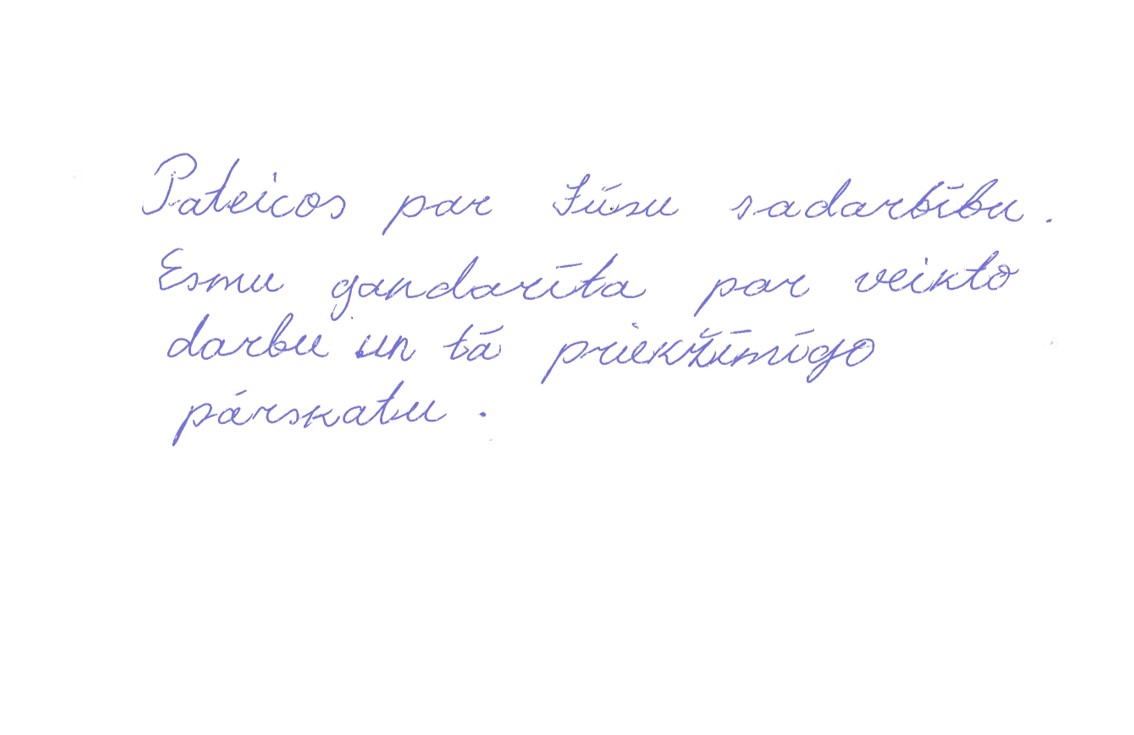 Pateicos par Jūsu sadarbību.
Esmu gandarīta par veikto
darbu un tā priekžīmīgo
pārskatu.